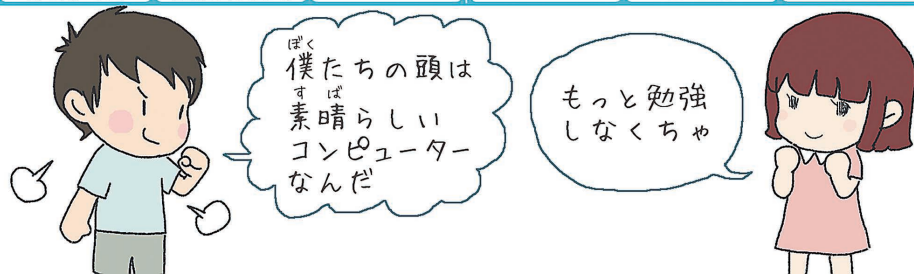 僕たちの頭は
素晴らしい
コンピューター
なんだ
もっと勉強
しなくちゃ